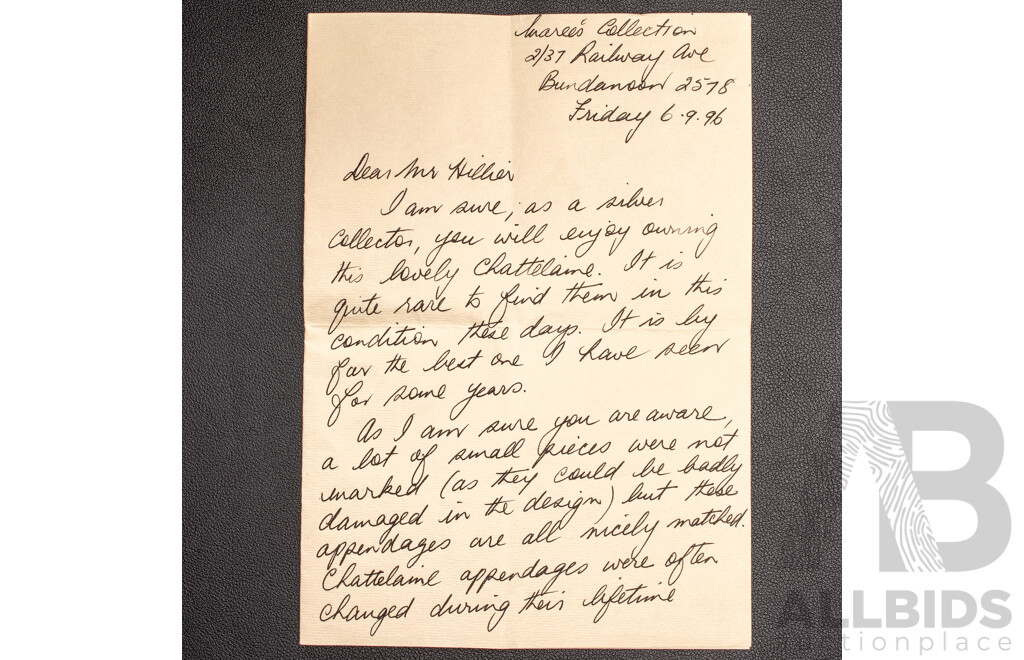 Maree's Collection
2/37 Railway Ave
Bundanoon 2578
Friday 6.9.96
Dear Mr Hillier
I am sure, as a silver
collector, you will enjoy owning
this lovely Chattelaine. It is
quite rare to find them in this
condition these days. It is by
far the best one I have seen
for some years.
As I am sure you are aware,
a lot of small pieces were not
marked (as they could be badly
damaged in the design) but these
appendages are all nicely matched.
Chattelaine appendages were often
changed during their lifetime
ALLBIDS
auctionplace